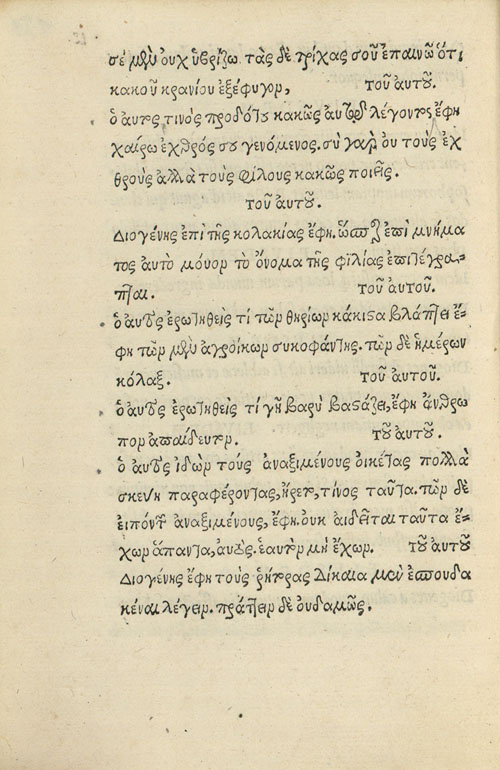 σέ μὲν οὐχ ὑβρίζω. τὰς δὲ τρίχας σοῦ ἐπαινῶ ὅτι
κακοῦ κρανίου ἐξέφυγον, τοῦ αὐτοῦ.
ὁ αὐτὸς τινὸς προδότου κακῶς αὐτὸν λέγοντος ἔφη
χαίρω ἐχθρός σου γενόμενος. σὺ γαρ ου τοὺς ἐχ
θροὺς ἀλλὰ τοὺς φίλους κακῶς ποιεῖς.
τοῦ αυτοῦ.
Διογένης ἐπὶ τῆς κολακίας ἔφη. ὥσπερ ἐπὶ μνήμα
τος αὐτὸ μόνον τὸ ὄνομα τῆς φιλίας ἐπιγέγρα-
πται. τοῦ αυτοῦ.
ὁ αυτὸς ἐρωτηθεὶς τί τῶν θηρίων κάκιστα βλάπτει ἔ-
φη τῶν μὲν αγροίκων συκοφάντης. τῶν δὲ ἡμέρων
κόλαξ. τοῦ αυτοῦ.
ὁ αυτὸς ἐρωτηθεὶς τί γῆ βαρὺ βαστάζει, ἔφη ἄνθρω
πον ἀπαίδευτον. τοῦ αὐτοῦ.
ὁ αυτὸς ἰδὼν τοὺς ἀναξιμένους οἰκέτας πολλὰ
σκευη παραφέροντας, ἤρετο, τίνος ταῦτα. τῶν δὲ
ειπόντων ἀναξιμένους, ἔφη. ουκ αιδεῖται ταῦτα ἔ-
χων ἅπαντα, αυτὸς. ἑαυτὸν μὴ ἔχων. τοῦ αυτοῦ
Διογένης ἔφη τοὺς ῥήτορας Δίκαια μὲν ἐσπουδα
κέναι λέγειν. πράττειν δὲ ουδαμῶς.